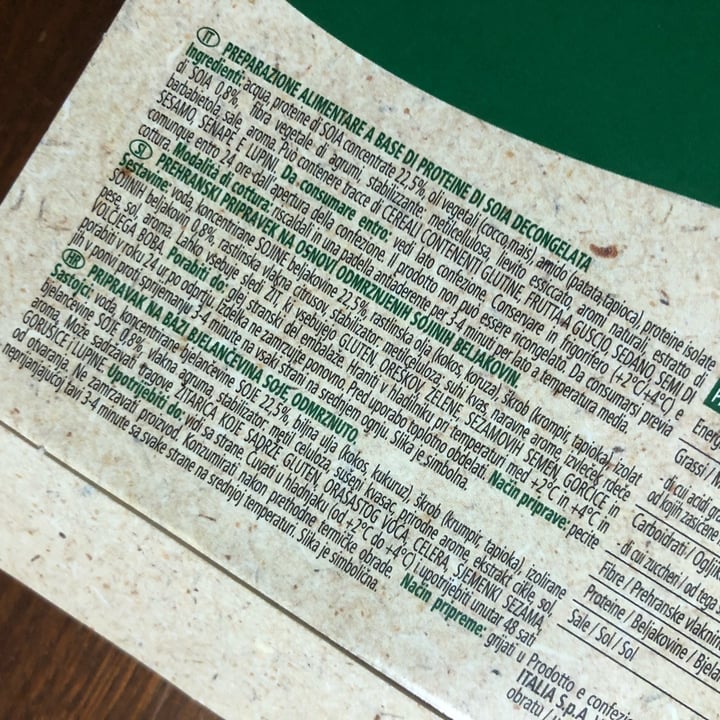 IT PREPARAZIONE ALIMENTARE A BASE DI PROTEINE DI SOIA DECONGELATA
Ingredienti: acqua, proteine di SOIA concentrate 22,5%, oli vegetali (cocco, mais), amido (patata, tapioca), proteine isolate
di SOIA 0,8%, fibra vegetale di agrumi, stabilizzante: metilcellulosa, lievito essiccato, aromi naturali, estratto di
barbabietola, sale, aroma. Può contenere tracce di CEREALI CONTENENTI GLUTINE, FRUTTA A GUSCIO, SEDANO, SEMI DI
SESAMO, SENAPE E LUPINI. Da consumare entro: vedi lato confezione. Conservare in frigorifero (+2°C/+4°C) e
comunque entro 24 ore dall'apertura della confezione. Il prodotto non può essere ricongelato. Da consumarsi previa
cottura. Modalità di cottura: riscaldali in una padella antiaderente per 3-4 minuti per lato a temperatura media.
SI PREHRANSKI PRIPRAVEK NA OSNOVI ODMRZNJENIH SOJINIH BELJAKOVIN.
Sestavine: voda, koncentrirane SOJINE beljakovine 22,5%, rastlinska olja (kokos, koruza), škrob (krompir, tapioka), izolat
SOJINIH beljakovin 0,8%, rastlinska vlakna citrusov, stabilizator: metilceluloza; suhi kvas, naravne arome, izvleček rdeče
pese, sol, aroma. Lahko vsebuje sledi ŽIT, ki vsebujejo GLUTEN, OREŠKOV, ZELENE, SEZAMOVIH SEMEN, GORČICE in
VOLČJEGA BOBA. Porabiti do: glej stranski del embalaže. Hraniti v hladilniku pri temperaturi med +2°C in +4°C in
porabiti v roku 24 ur po odprtju. Izdelka ne zamrzujte ponovno. Pred uporabo toplotno obdelati. Način priprave: pecite
jih v ponvi proti sprijemanju 3-4 minute na vsaki strani na srednjem ognju. Slika je simbolna.
HR PRIPRAVAK NA BAZI BJELANČEVINA SOJE, ODMRZNUTO.
Sastojci: voda, koncentrirane bjelančevine SOJE 22,5%, biljna ulja (kokos, kukuruz), škrob (krumpir, tapioka), izolirane
bjelančevine SOJE 0,8%, vlakna agruma, stabilizator: metil celuloza; sušeni kvasac, prirodne arome, ekstrakt cikle, sol,
aroma. Može sadržavati tragove ŽITARICA KOJE SADRŽE GLUTEN, ORAŠASTOG VOĆA, CELERA, SJEMENKI SEZAMA,
GORUŠICE I LUPINE. Upotrijebiti do: vidi sa strane. Čuvati u hladnjaku (od +2°C do +4°C) i upotrijebiti unutar 48 sati
od otvaranja. Ne zamrzavati proizvod. Konzumirati nakon prethodne termičke obrade. Način pripreme: grijati u
neprijanjajućoj tavi 3-4 minute sa svake strane na srednjoj temperaturi. Slika je simbolična.
Grassi /
di cui acidi
od kojih zasićene
Carboidrati / Oglji
di cui zuccheri / od tega
Fibre / Prehranske vlaknine
Proteine / Beljakovine / Bjela
Sale / Sol / Sol
Prodotto e confezi
ITALIA S.p.A.
obratu /